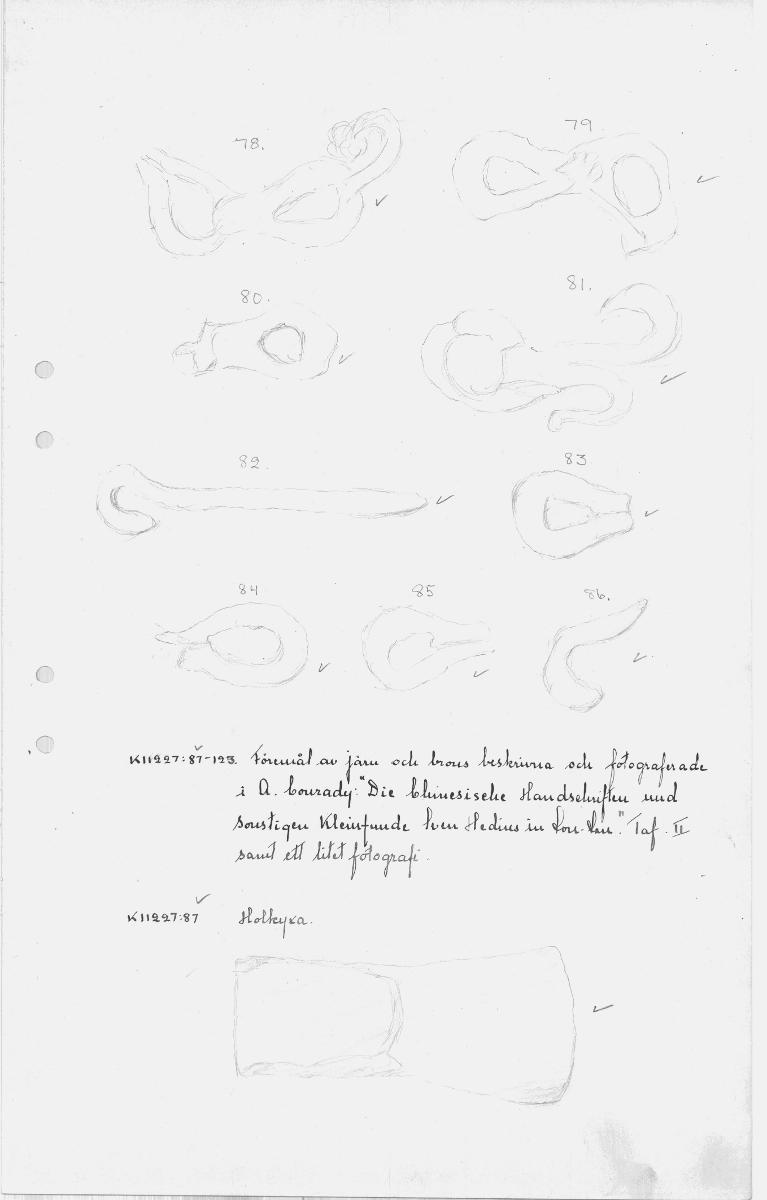 78.
79
80.
81.
82.
83
84
85
86.
K11227:87-123. Föremål av järn och brons beskrivna och fotograferade
i A. Conrady: "Die Chinesische Handschriften und
sonstigen Kleinfunde Sven Hedins in Lou-Lan". Taf. II
samt ett litet fotografi.
K11227:87 Holkyxa.